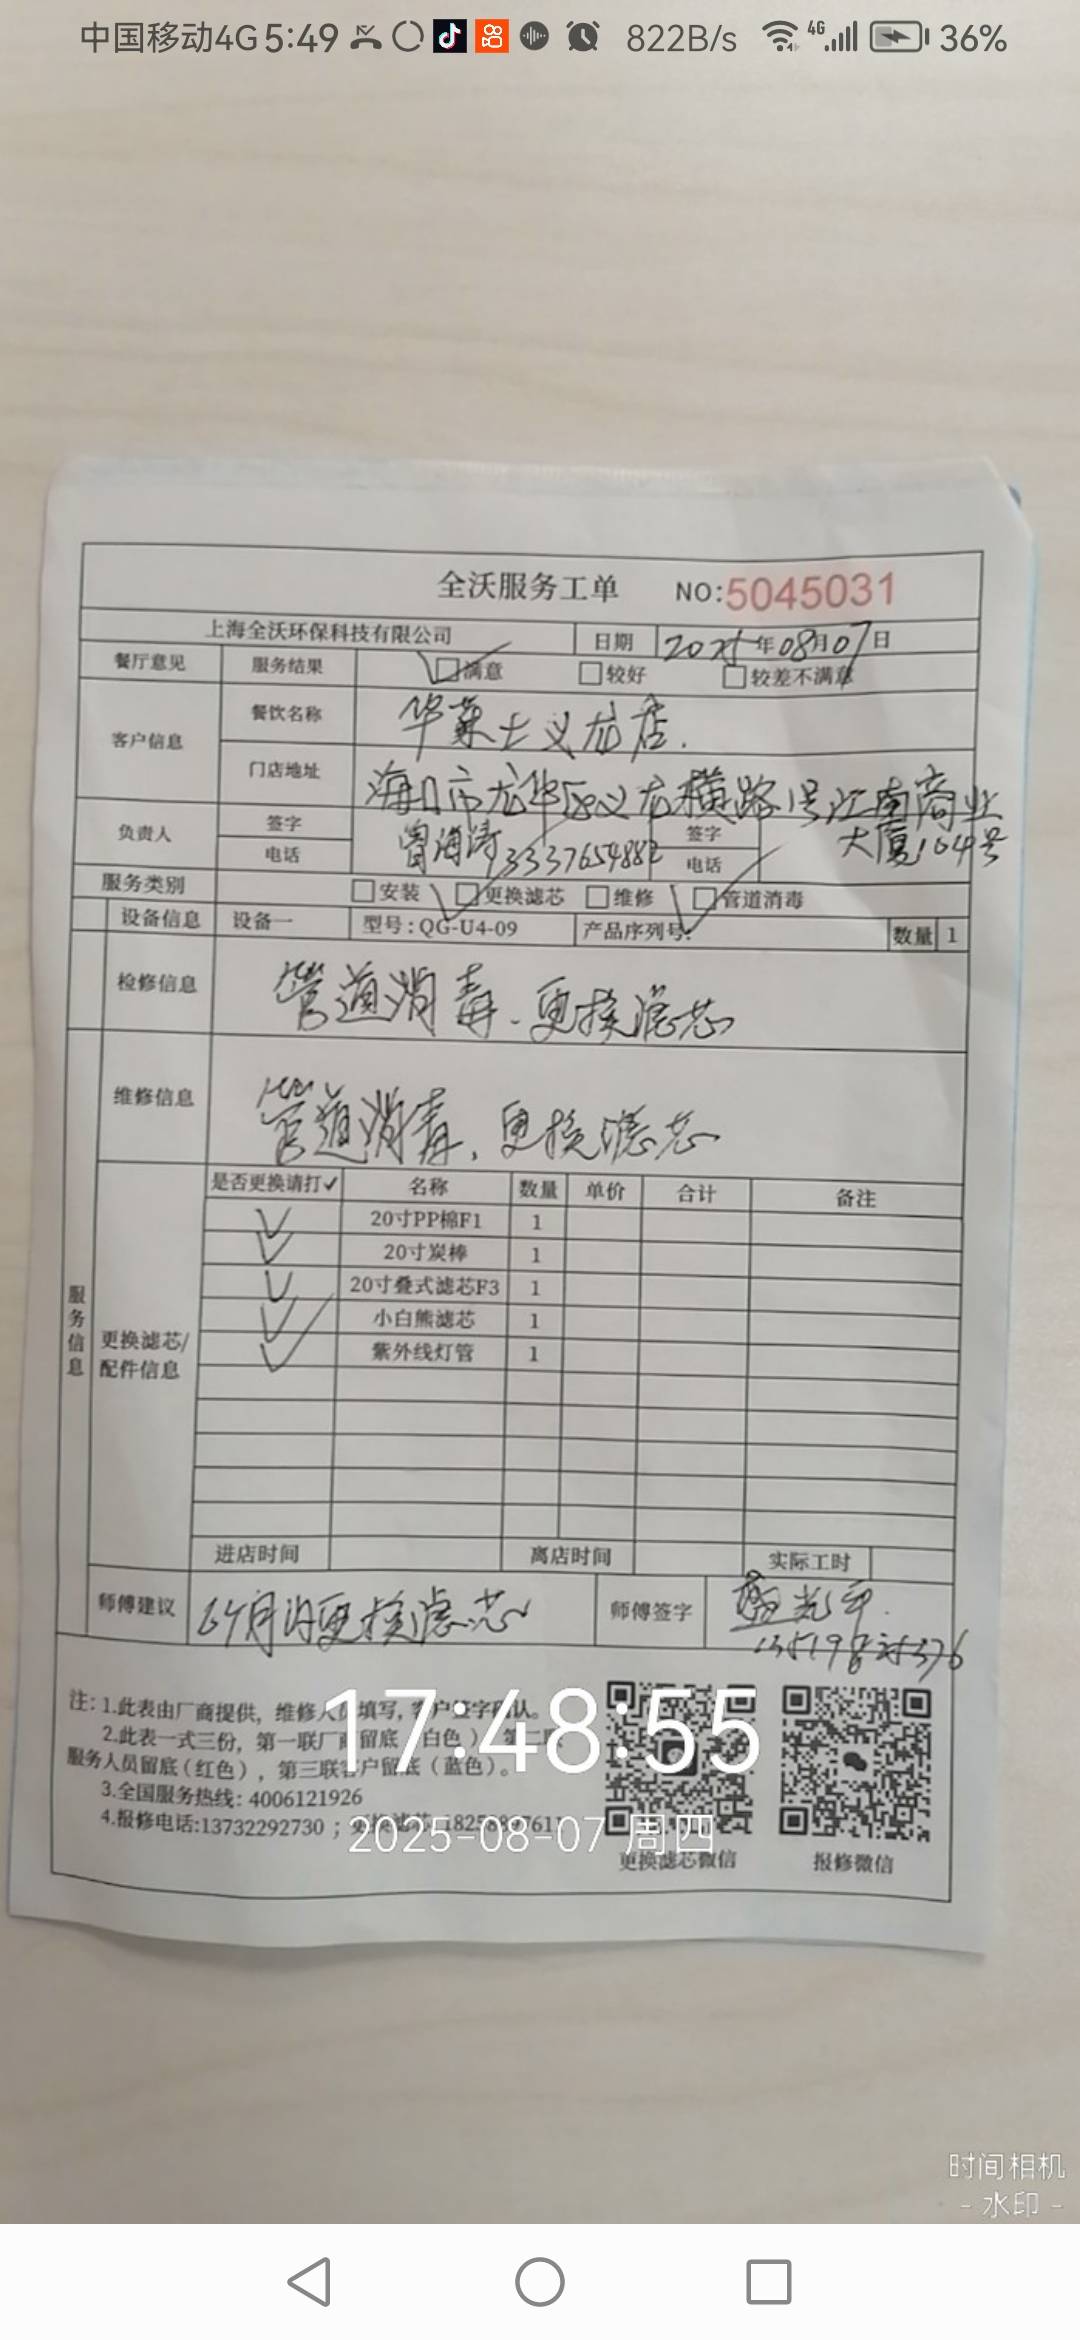 中国移动4G 5:49 822B/s 4G 36%
全沃服务工单 NO:5045031
上海全沃环保科技有限公司 日期 2025年08月07日
餐厅意见 服务结果 满意 较好 较差不满意
客户信息 餐饮名称 华莱士义龙店.
门店地址 海口市龙华区义龙横路1号江南商业
大厦104号
负责人 签字 曾海涛 签字
电话 13337654882 电话
服务类别 安装 更换滤芯 维修 管道消毒
设备信息 设备一 型号:QG-U4-09 产品序列号: 数量 1
检修信息 管道消毒.更换滤芯
维修信息 管道消毒,更换滤芯
服务信息
更换滤芯/
配件信息
是否更换请打✓ 名称 数量 单价 合计 备注
✓ 20寸PP棉F1 1
✓ 20寸炭棒 1
✓ 20寸叠式滤芯F3 1
✓ 小白熊滤芯 1
✓ 紫外线灯管 1
进店时间 离店时间 实际工时
师傅建议 6个月内更换滤芯 师傅签字
注:1.此表由厂商提供,维修人员填写,客户签字确认。
2.此表一式三份,第一联厂商留底(白色),第二联
服务人员留底(红色),第三联客户留底(蓝色)。
3.全国服务热线:4006121926
4.报修电话:13732292730;更换滤芯
更换滤芯微信 报修微信
17:48:55
2025-08-07 周四
时间相机
- 水印 -